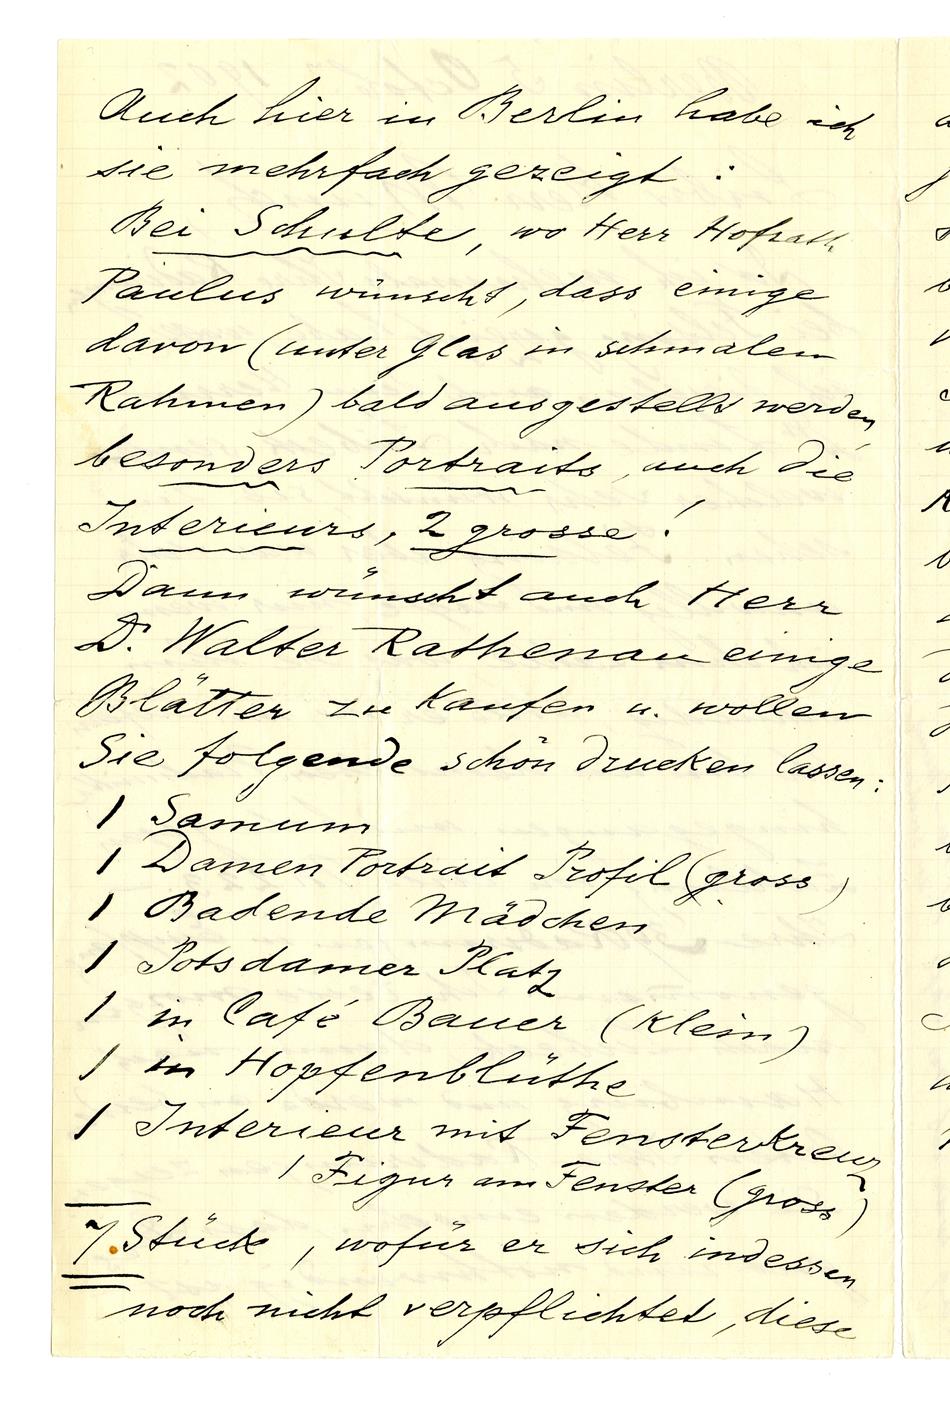 Auch hier in Berlin habe ich
sie mehrfach gezeigt :
Bei Schulte, wo Herr Hofrath
Paulus wünscht, dass einige
davon (unter Glas in schmalem
Rahmen) bald ausgestellt werden,
besonders Portraits, auch die
Interieurs, 2 grosse !
Dann wünscht auch Herr
Dr. Walter Rathenau einige
Blätter zu Kaufen u. wollen
Sie folgende schön drucken lassen:
1 Samum
1 Damen Portrait Profil (gross)
1 Badende Mädchen
1 Potsdamer Platz
1 in Café Bauer (klein)
1 in Hopfenblüthe
1 Interieur mit Fensterkreuz
1 Figur am Fenster (gross)
7. Stück, wofür er sich indessen
noch nicht verpflichtet, diese